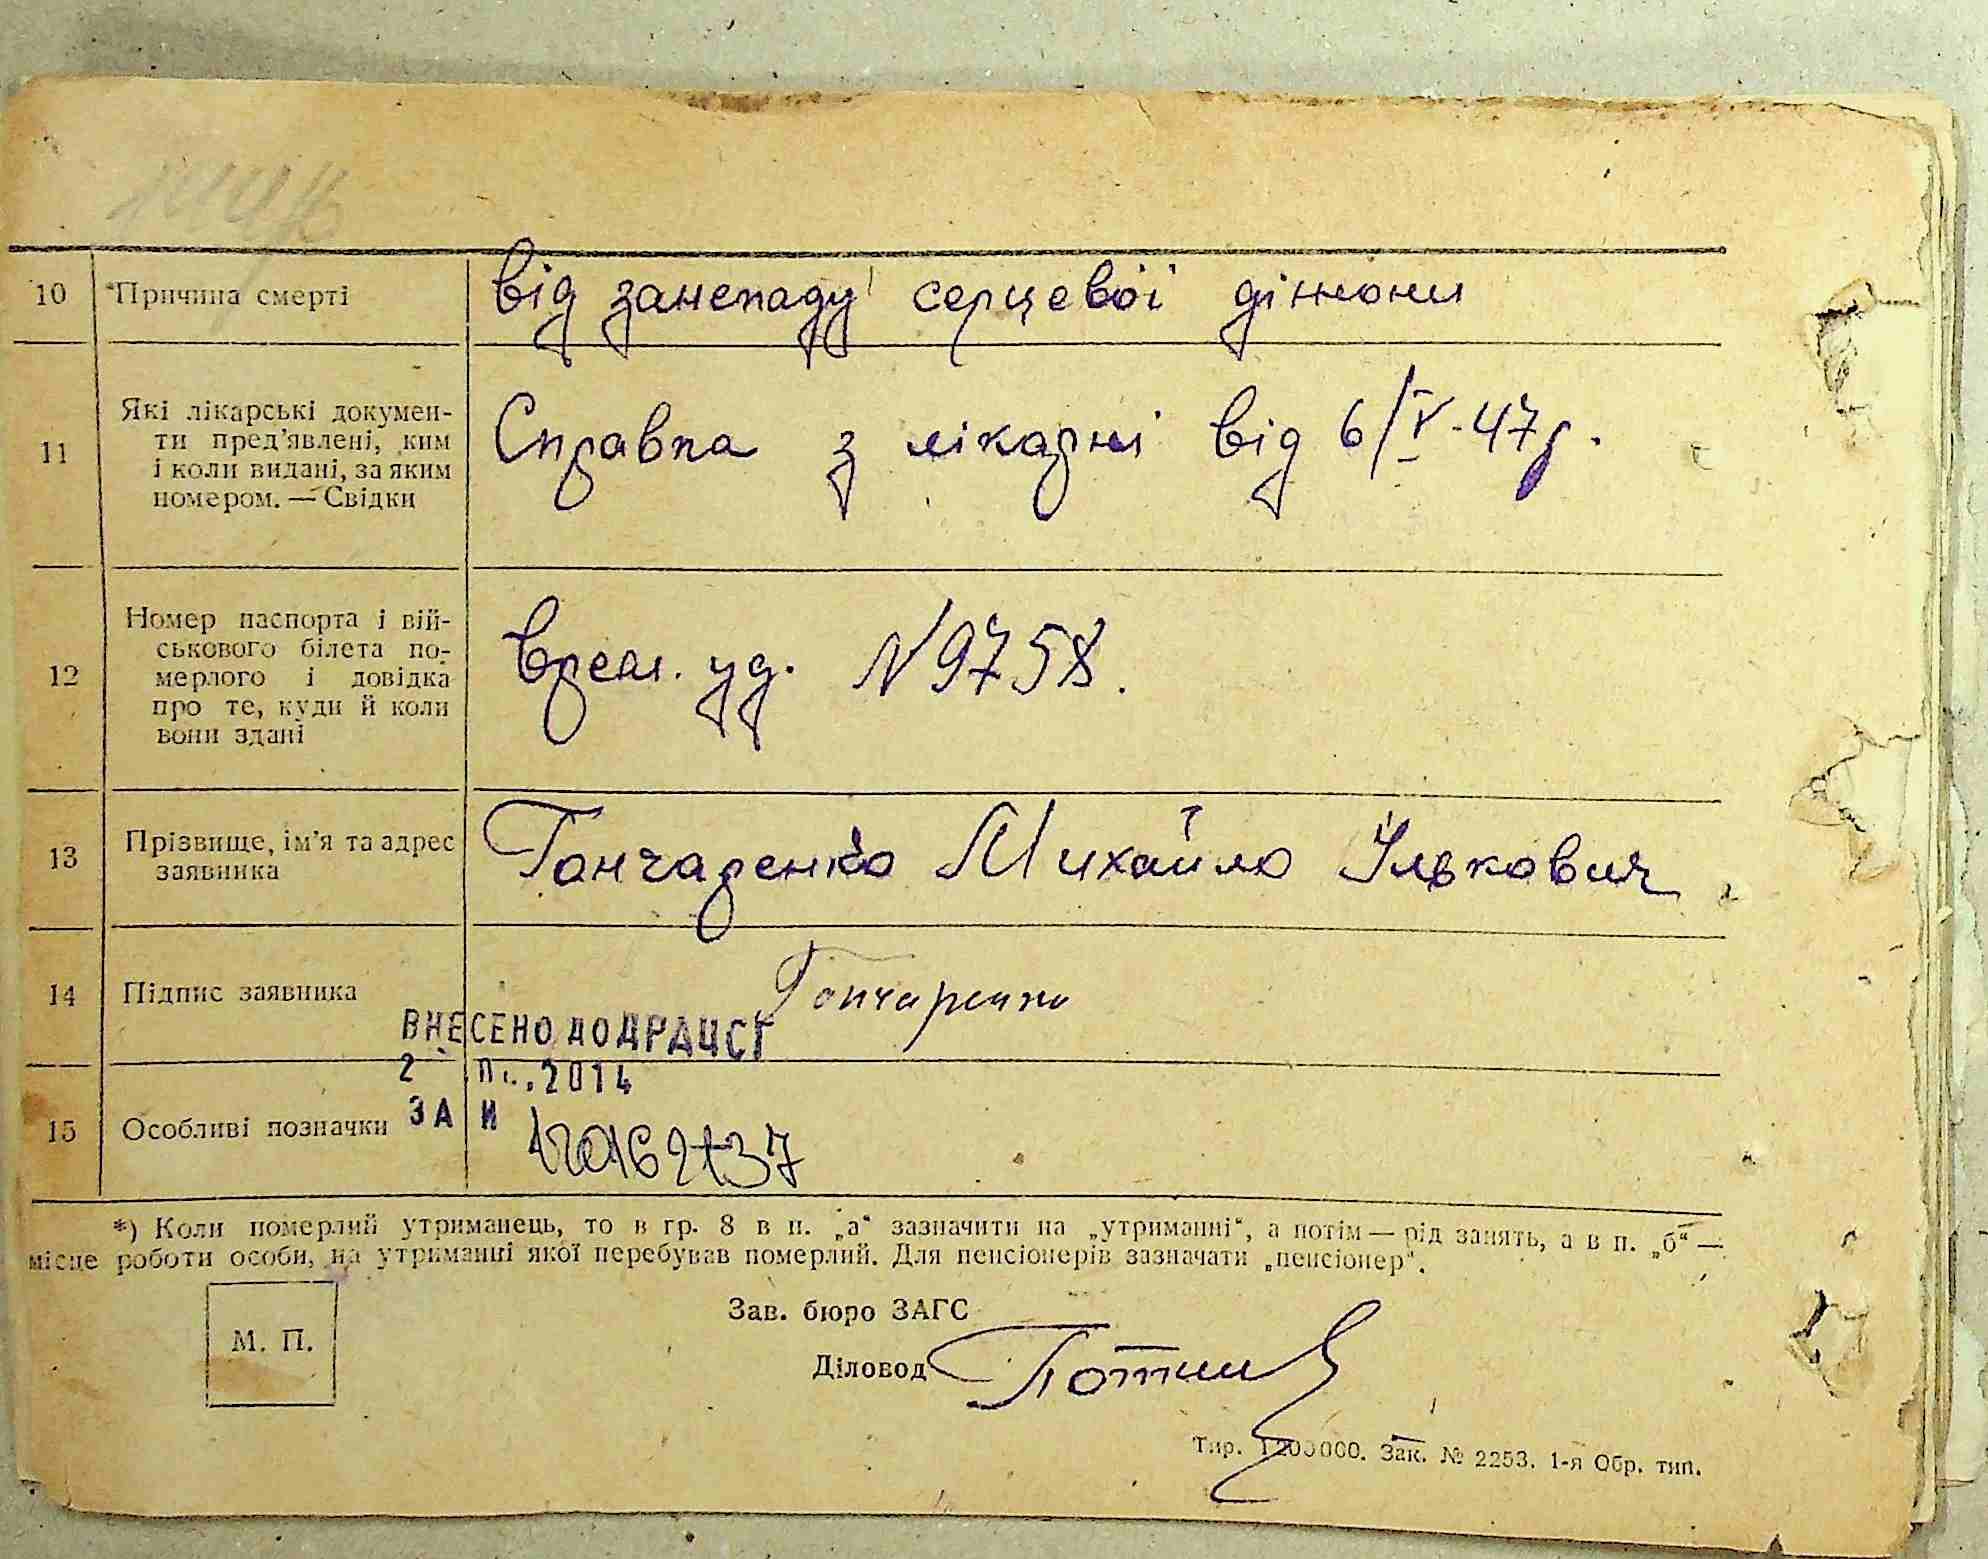 10 Причина смерті від занепаду серцевої
11 Які лікарські докумен-
ти пред'явлені, ким
і коли видані, за яким
номером. — Свідки
Справка з лікарні від 6/V-47р.
12 Номер паспорта і вій-
ськового білета по-
мерлого і довідка
про те, куди й коли
вони здані
врем. уд. N 9758.
13 Прізвище, ім'я та адрес
заявника
Гончаренко Михайло Ількович
14 Підпис заявника Гончаренко
ВНЕСЕНО ДО ДРАЦСГ
2 2014
15 Особливі позначки ЗА N
*) Коли померлий утриманець, то в гр. 8 в п. „а“ зазначити на „утриманні“, а потім — рід занять, а в п. „б“ —
місце роботи особи, на утриманні якої перебував померлий. Для пенсіонерів зазначати „пенсіонер“.
М. П.
Зав. бюро ЗАГС
Діловод
Тир. 1200000. Зак. № 2253. 1-я Обр. тип.